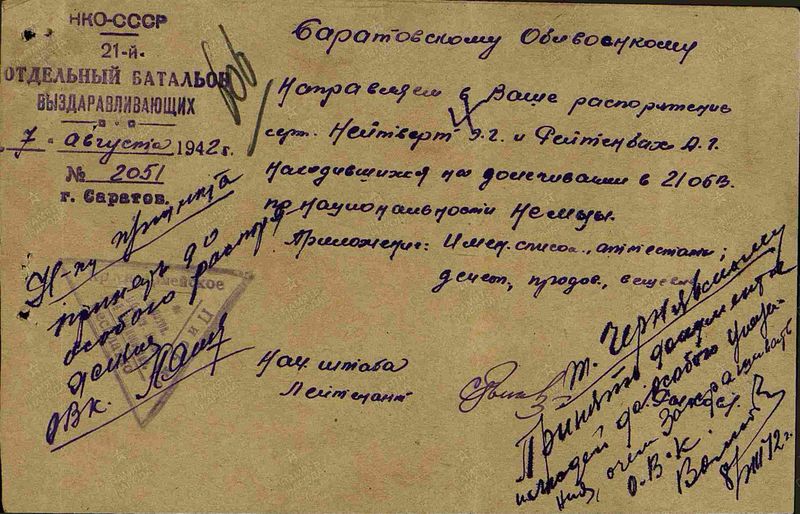 НКО-СССР
21-й
ОТДЕЛЬНЫЙ БАТАЛЬОН
ВЫЗДАРАВЛИВАЮЩИХ
7 августа 1942 г.
№ 2051
г. Саратов.
Саратовскому Облвоенкому
Направляем в Ваше распоряжение
серж. Нейтверт Э.г. и Фейтенбах А.г.
находившихся на долечивании в 21 ОБВ.
по национальности Немцы.
Приложение: Имен. список, аттестаты;
денеж, продов., вещев
Нач штаба
Лейтенант
Н-ку приципта
принять до
особого распоря
жения
ОВК.
т. Чернявскому
Принять документы
людей до особого указа-
ния, о чем запрашивать
О.В.К.
8/VIII 42 г.